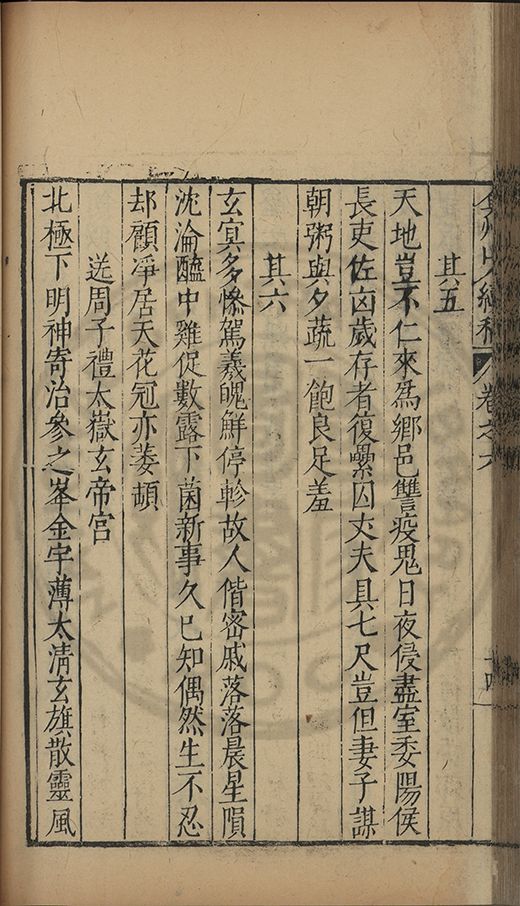 弇州山人續稿 卷之六 十四
其五
天地豈不仁來爲鄉邑讐疫鬼日夜侵盡室委陽侯
長吏佐凶歲存者復纍囚丈夫具七尺豈但妻子謀
朝粥與夕蔬一飽良足羞
其六
玄冥多慘駕羲魄鮮停軫故人偕密戚落落晨星隕
沈淪醯中雞促數露下菌新事久已知偶然生不忍
却顧凈居天花冠亦萎頓
送周子禮太嶽玄帝宫
北極下明神寄治參之峯金宇薄太清玄旗散靈風